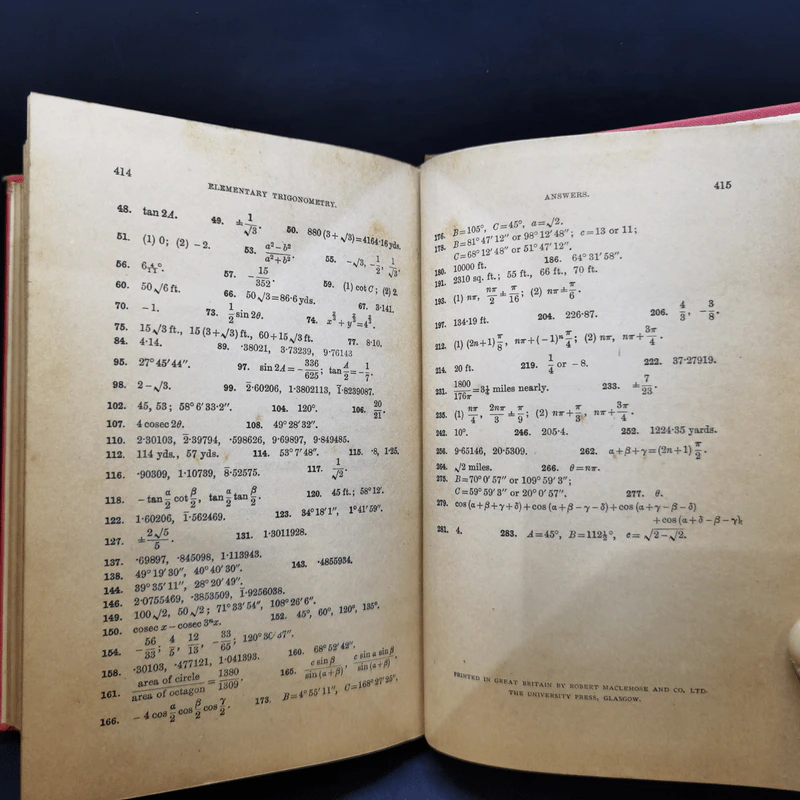 414
ELEMENTARY TRIGONOMETRY.
48. tan 2A. 49. ±1/√3. 50. 880(3+√3)=4164·16 yds.
51. (1) 0; (2) −2. 53. (a²−b²)/(a²+b²). 55. −√3, −1/2, 1/√3.
56. 6 4/11°. 57. −15/352. 59. (1) cot C; (2) 2.
60. 50√6 ft. 66. 50√3=86·6 yds. 67. 3·141.
70. −1. 73. 1/2 sin 2θ. 74.
75. 15√3 ft., 15(3+√3) ft., 60+15√3 ft. 77. 8·10.
84. 4·14. 89. ·38021, 3·73239, 9·76143
95. 27° 45′ 44″. 97. sin 2A=−336/625; tan A/2=−1/7.
98. 2−√3. 99. 2̅·60206, 1·3802113, 1̅·8239087.
102. 45, 53; 58° 6′33·2″. 104. 120°. 106. 20/21.
107. 4 cosec 2θ. 108. 49° 28′ 32″.
110. 2·30103, 2̅·39794, ·598626, 9·69897, 9·849485.
112. 114 yds., 57 yds. 114. 53° 7′ 48″. 115. ·8, 1·25.
116. ·90309, 1·10739, 8̅·52575. 117. 1/√2.
118. −tan α/2 cot β/2, tan α/2 tan β/2. 120. 45 ft.; 58° 12′.
122. 1·60206, 1̅·562469. 123. 34° 18′ 1″, 1° 41′ 59″.
127. ±2√5/5. 131. 1·3011928.
137. ·69897, ·845098, 1·113943.
138. 49° 19′ 30″, 40° 40′ 30″. 143. ·4855934.
144. 39° 35′ 11″, 28° 20′ 49″.
146. 2·0755469, ·3853509, 1̅·9256038.
149. 100√2, 50√2; 71° 33′ 54″, 108° 26′ 6″.
150. cosec x − cosec 3ⁿx. 152. 45°, 60°, 120°, 135°.
154. −56/33; 4/5, 12/13, −33/65; 120° 30′
158. ·30103, ·477121, 1·041393. 160. 68° 52′ 42″.
161. area of circle/area of octagon=1380/1309. 165. c sin β/sin (α+β), c sin α sin β/sin (α+β).
166. −4 cos α/2 cos β/2 cos γ/2. 173. B=4° 55′ 11″, C=168° 27′ 25″,
ANSWERS.
415
176. B=105°, C=45°, a=√2.
178. B=81° 47′ 12″ or 98° 12′ 48″; c=13 or 11;
C=68° 12′ 48″ or 51° 47′ 12″.
180. 10000 ft. 186. 64° 31′ 58″.
191. 2310 sq. ft.; 55 ft., 66 ft., 70 ft.
193. (1) nπ, nπ/2 ± π/16; (2) nπ ± π/6.
197. 134·19 ft. 204. 226·87. 206. 4/3, −3/8.
212. (1) (2n+1)π/8, nπ+(−1)ⁿ π/4; (2) nπ, nπ+3π/4
214. 20 ft. 219. 1/4 or −8. 222. 37·27919.
231. 1800/176π=3¼ miles nearly. 233. ±7/23.
235. (1) nπ/4, 2nπ/3 ± π/9; (2) nπ+π/3, nπ+3π/4.
242. 10°. 246. 205·4. 252. 1224·35 yards.
256. 9·65146, 20·5309. 262. α+β+γ=(2n+1) π/2.
264. √2 miles. 266. θ=nπ.
275. B=70° 0′ 57″ or 109° 59′ 3″;
C=59° 59′ 3″ or 20° 0′ 57″. 277. θ.
279. cos (α+β+γ+δ)+cos (α+β−γ−δ)+cos (α+γ−β−δ)
+cos (α+δ−β−γ).
281. 4. 283. A=45°, B=112½°, c=√(2−√2).
PRINTED IN GREAT BRITAIN BY ROBERT MACLEHOSE AND CO. LTD.
THE UNIVERSITY PRESS, GLASGOW.